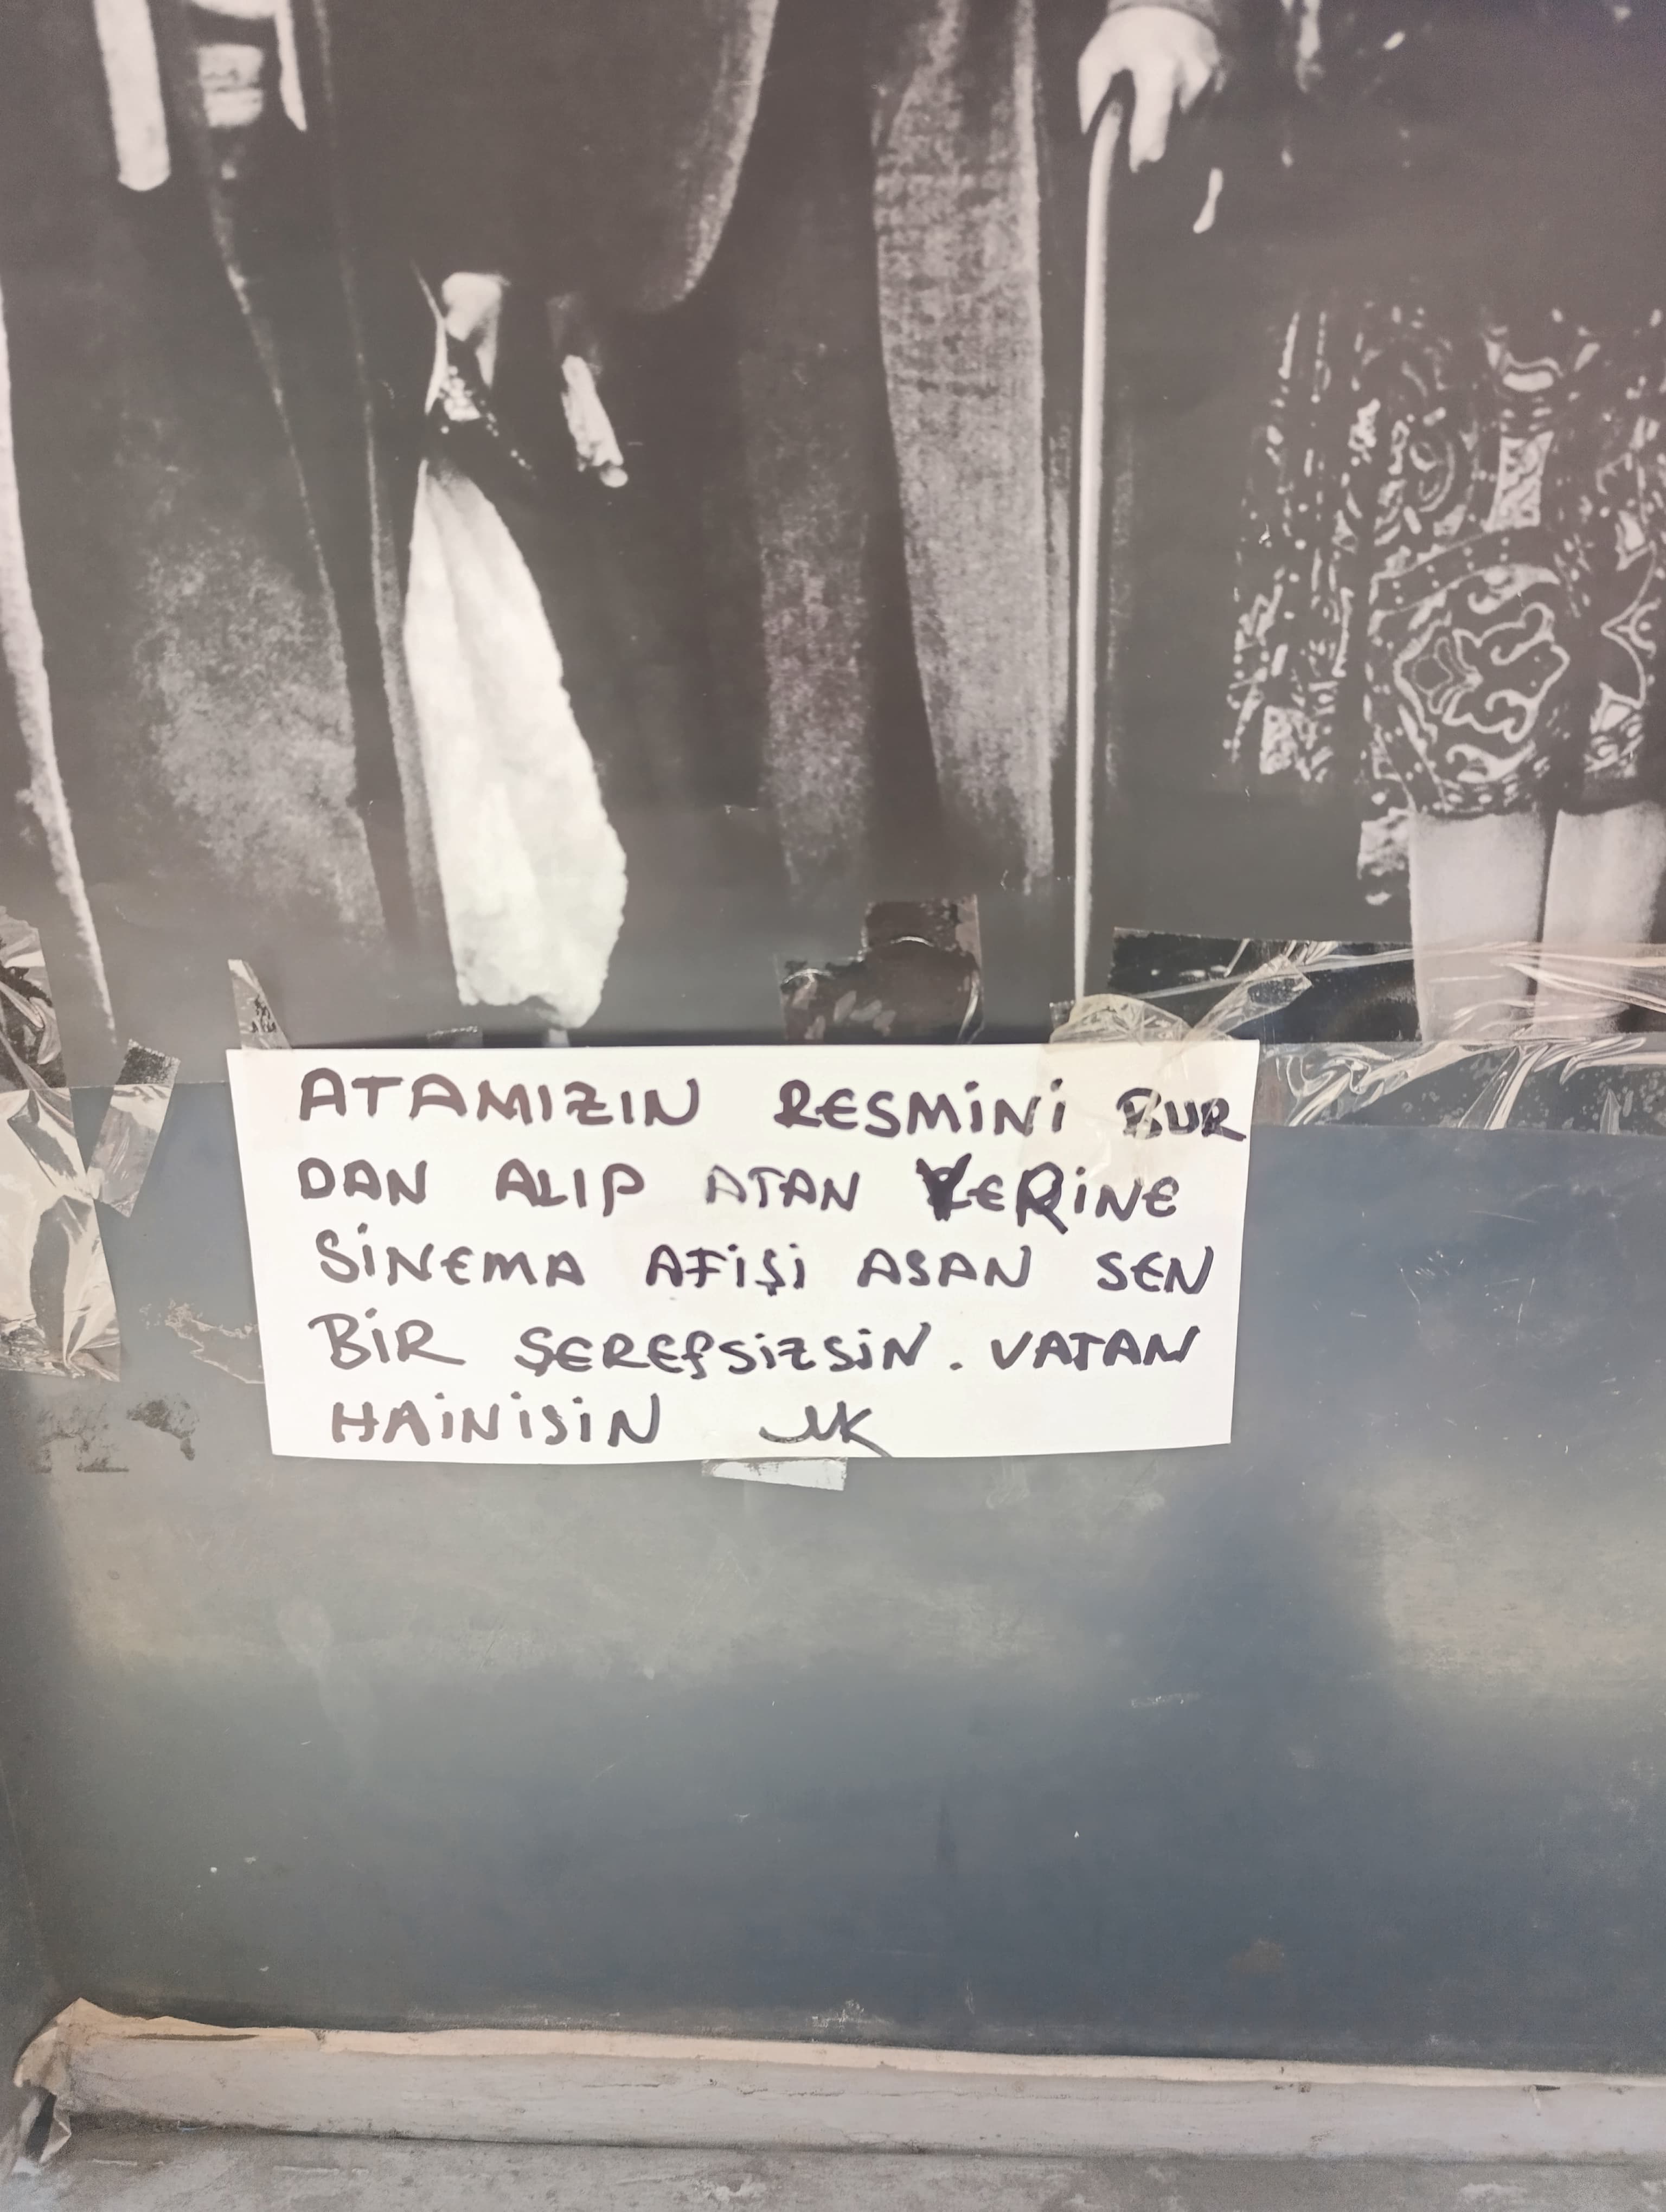 ATAMIZIN RESMİNİ BUR
DAN ALIP ATAN YERİNE
SİNEMA AFİŞİ ASAN SEN
BİR ŞEREFSİZSİN. VATAN
HAİNİSİN